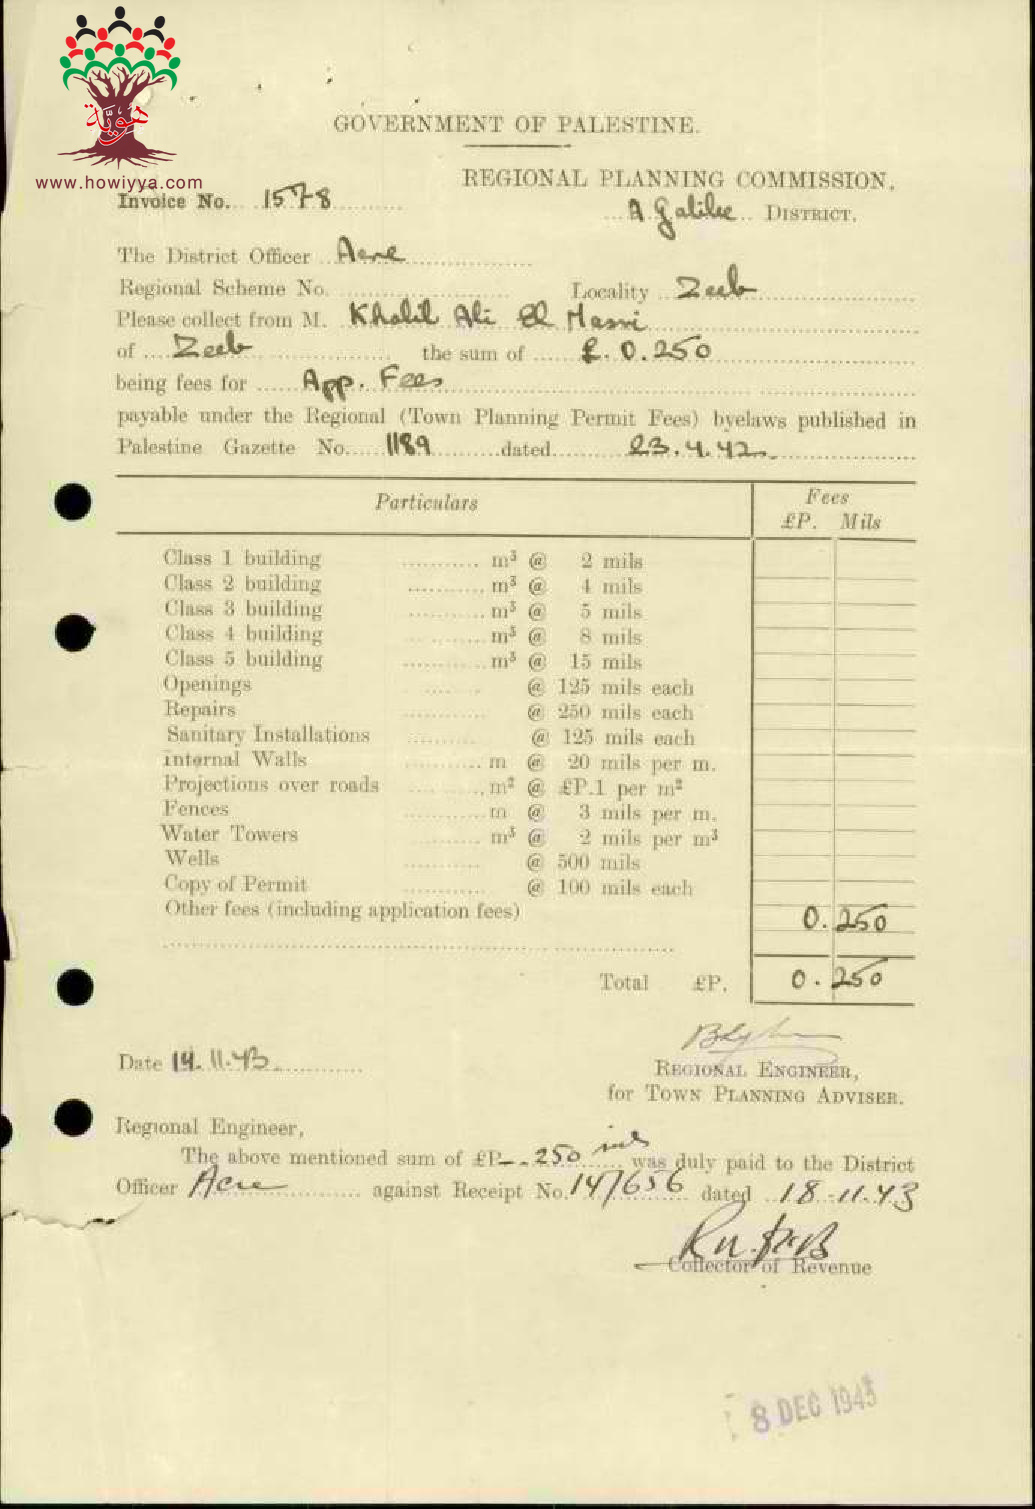 هوية
www.howiyya.com
GOVERNMENT OF PALESTINE.
REGIONAL PLANNING COMMISSION,
Invoice No. 1578
Galilee DISTRICT.
The District Officer Acre
Regional Scheme No. Locality Zeeb
Please collect from M. Khalil Ali El Masri
of Zeeb the sum of £. 0.250
being fees for App. Fees
payable under the Regional (Town Planning Permit Fees) byelaws published in
Palestine Gazette No. 1189 dated 23.4.42.
Particulars Fees
£P. Mils
Class 1 building m³ @ 2 mils
Class 2 building m³ @ 4 mils
Class 3 building m³ @ 5 mils
Class 4 building m³ @ 8 mils
Class 5 building m³ @ 15 mils
Openings @ 125 mils each
Repairs @ 250 mils each
Sanitary Installations @ 125 mils each
Internal Walls m @ 20 mils per m.
Projections over roads m² @ £P.1 per m²
Fences m @ 3 mils per m.
Water Towers m³ @ 2 mils per m³
Wells @ 500 mils
Copy of Permit @ 100 mils each
Other fees (including application fees) 0.250
Total £P. 0.250
Date 14.11.43
REGIONAL ENGINEER,
for TOWN PLANNING ADVISER.
Regional Engineer,
The above mentioned sum of £P -.250 mils was duly paid to the District
Officer Acre against Receipt No. 147656 dated 18.11.43
Collector of Revenue
8 DEC 1943